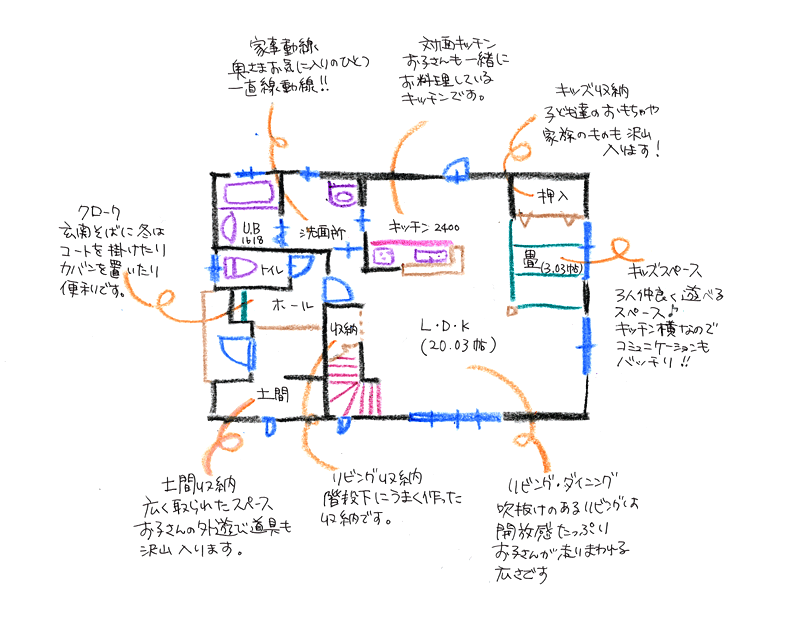 家事動線
奥さまお気に入りのひとつ
一直線動線!!
対面キッチン
お子さんも一緒に
お料理している
キッチンです。
キッズ収納
子ども達のおもちゃや
家族のものも沢山
入ります!
クローク
玄関そばに冬は
コートを掛けたり
カバンを置いたり
便利です。
U.B
1618
洗面所
キッチン2400
押入
畳(3.03帖)
トイレ
ホール
収納
L・D・K
(20.03帖)
土間
キッズスペース
3人仲良く遊べる
スペース♪
キッチン横なので
コミュニケーションも
バッチリ!!
土間収納
広く取られたスペース
お子さんの外遊び道具も
沢山入ります。
リビング収納
階段下にうまく作った
収納です。
リビング・ダイニング
吹抜けのあるリビングは
開放感たっぷり
お子さんが走りまわれる
広さです